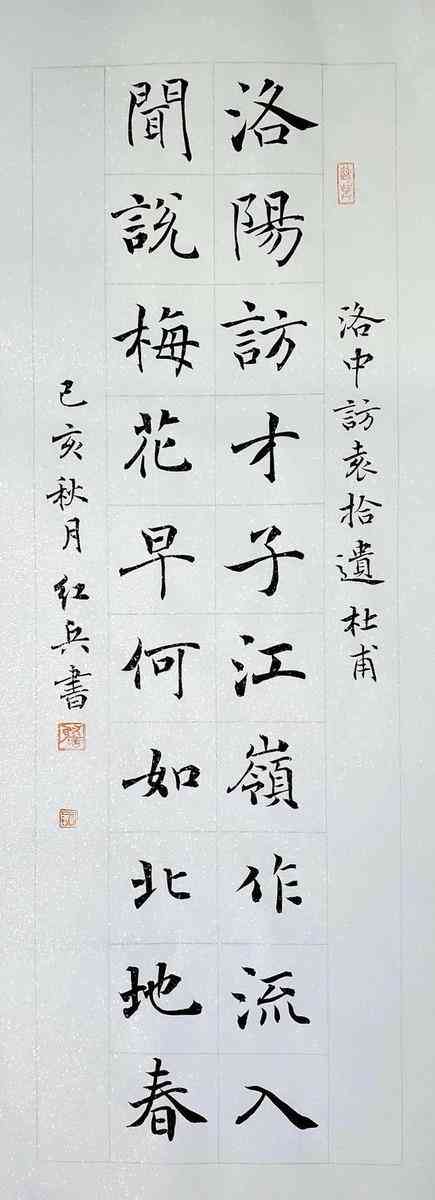 洛中訪袁拾遺 杜甫
洛陽訪才子江嶺作流入
聞說梅花早何如北地春
己亥秋月 红兵書